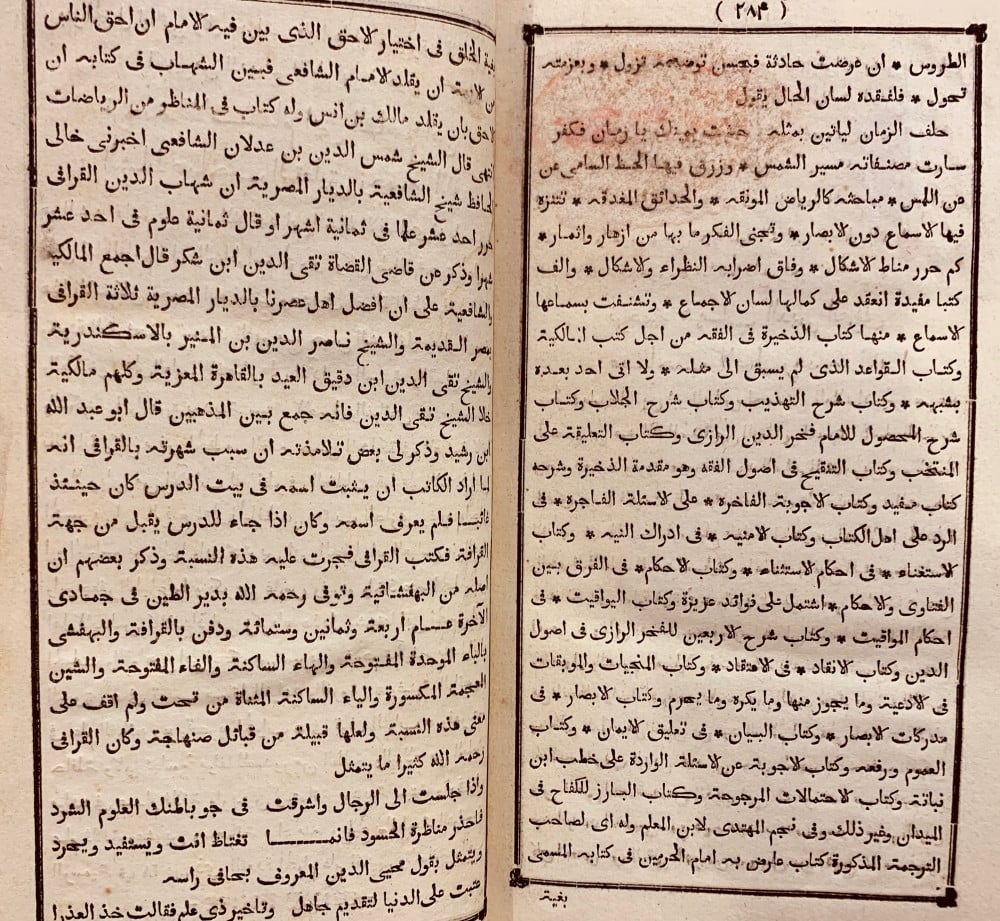 ( ٢٨٤ )
الطروس * ان عرضت حادثة فبحسن توضيحه تزول * وبعزمته
تحول * فلفقده لسان الحال يقول
حلف الزمان لياتين بمثله حنثت يمينك يا زمان فكفر
سارت مصنفاته مسير الشمس * ورزق فيها الحظ السامى عن
عن اللمس * مباحثه كالرياض المونقه * والحدائق المغدقه * تتنزه
فيها الاسماع دون الابصار * وتجنى الفكر ما بها من ازهار واثمار *
كم حرر مناط الاشكال * وفاق اضرابه النظراء والاشكال * والف
كتبا مفيدة انعقد على كمالها لسان الاجماع * وتشنفت بسماعها
الاسماع * منها كتاب الذخيرة فى الفقه من اجل كتب المالكية
وكتاب القواعد الذى لم يسبق الى مثله * ولا اتى احد بعده
بشبهه * وكتاب شرح التهذيب وكتاب شرح الجلاب وكتاب
شرح المحصول للامام فخر الدين الرازى وكتاب التعليقة على
المنتخب وكتاب التنقيح فى اصول الفقه وهو مقدمة الذخيرة وشرحه
كتاب مفيد وكتاب الاجوبة الفاخرة * على الاسئلة الفاجرة * فى
الرد على اهل الكتاب وكتاب الامنية * فى ادراك النيه * وكتاب
الاستغناء * فى احكام الاستثناء * وكتاب الاحكام * فى الفرق بين
الفتاوى والاحكام * اشتمل على فوائد عزيزة وكتاب اليواقيت * فى
احكام المواقيت * وكتاب شرح الاربعين للفخر الرازى فى اصول
الدين وكتاب الانقاد * فى الاعتقاد * وكتاب المنجيات والموبقات
فى الادعية وما يجوز منها وما يكره وما يحرم وكتاب الابصار * فى
مدركات الابصار * وكتاب البيان * فى تعليق الايمان * وكتاب
العموم ورفعه وكتاب الاجوبة عن الاسئلة الواردة على خطب ابن
نباتة وكتاب الاحتمالات المرجوحة وكتاب البارز للكفاح فى
الميدان وغير ذلك وفى نجم المهتدى لابن المعلم وله اى لصاحب
الترجمة المذكورة كتاب عارض به امام الحرمين فى كتابه المسمى
بغية
بغية الخلق فى اختيار الاحق الذى بين فيه الامام ان احق الناس
من الايمة ان يقلد الامام الشافعى فبين الشهاب فى كتابه ان
الاحق بان يقلد مالك بن انس وله كتاب فى المناظر من الرياضات
انتهى قال الشيخ شمس الدين بن عدلان الشافعى اخبرنى خالى
الحافظ شيخ الشافعية بالديار المصرية ان شهاب الدين القرافى
حرر احد عشر علما فى ثمانية اشهر او قال ثمانية علوم فى احد عشر
شهرا وذكر عن قاضى القضاة تقى الدين ابن شكر قال اجمع المالكية
والشافعية على ان افضل اهل عصرنا بالديار المصرية ثلاثة القرافى
بمصر القديمة والشيخ ناصر الدين بن المنير بالاسكندرية
والشيخ تقى الدين ابن دقيق العيد بالقاهرة المعزية وكلهم مالكية
خلا الشيخ تقى الدين فانه جمع بين المذهبين قال ابو عبد الله
ابن رشيد وذكر لى بعض تلامذته ان سبب شهرته بالقرافى انه
لما اراد الكاتب ان يثبت اسمه فى بيت الدرس كان حينئذ
غائبا فلم يعرف اسمه وكان اذا جاء للدرس يقبل من جهة
القرافة فكتب القرافى فجرت عليه هذه النسبة وذكر بعضهم ان
اصله من البهفشائية وتوفى رحمه الله بدير الطين فى جمادى
الآخرة عام اربعة وثمانين وستمائة ودفن بالقرافة والبهفشى
بالباء الموحدة المفتوحة والهاء الساكنة والفاء المفتوحة والشين
المعجمة المكسورة والياء الساكنة المثناة من تحت ولم اقف على
معنى هذه النسبة ولعلها قبيلة من قبائل صنهاجة وكان القرافى
رحمه الله كثيرا ما يتمثل
واذا جلست الى الرجال واشرقت فى جو باطنك العلوم الشرد
فاحذر مناظرة الحسود فانما تغتاظ انت ويستفيد ويحرد
ويتمثل بقول محيى الدين المعروف بحافى راسه
عتبت على الدنيا لتقديم جاهل وتاخير ذى علم فقالت خذ العذرا